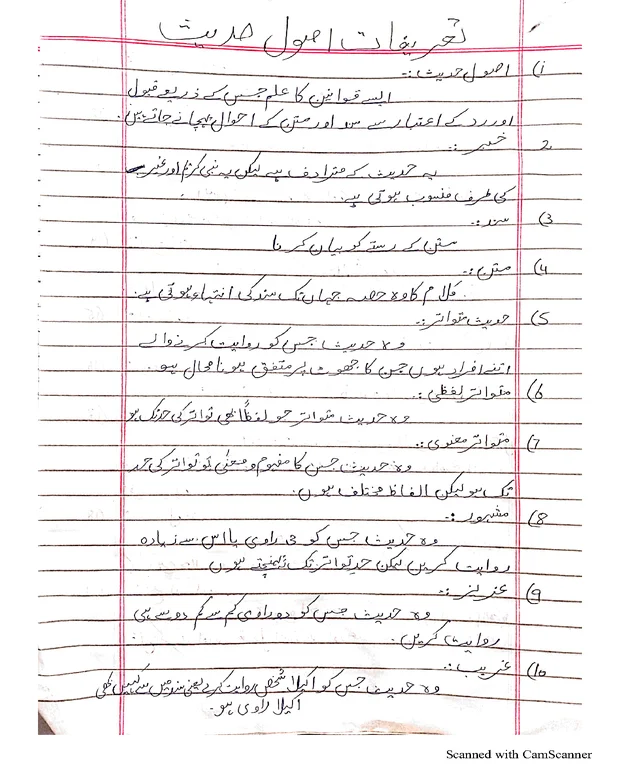 تعریفات اصول حدیث
1) اصول حدیث:۔
ایسے قوانین کا علم جس کے ذریعے قبول
اور رد کے اعتبار سے سند اور متن کے احوال پہچانے جاتے ہیں۔
2 خبر:۔
یہ حدیث کے مترادف ہے لیکن یہ نبی کریم اور غیر
کی طرف منسوب ہوتی ہے۔
3) سند:۔
متن کے رستے کو بیان کرنا
4) متن:۔
کلام کا وہ حصہ جہاں تک سند کی انتہاء ہوتی ہے۔
5) حدیث متواتر:۔
وہ حدیث جس کو روایت کرنے والے
اتنے افراد ہوں جن کا جھوٹ پر متفق ہونا محال ہو۔
6) متواتر لفظی:۔
وہ حدیث متواتر جو لفظاً بھی تواتر کی حد تک ہو
7) متواتر معنوی:۔
وہ حدیث جس کا مفہوم و معنٰی تو تواتر کی حد
تک ہو لیکن الفاظ مختلف ہوں۔
8) مشہور:۔
وہ حدیث جس کو 3 راوی یا اس سے زیادہ
روایت کریں لیکن حد تواتر تک نہ پہنچتے ہوں
9) عزیز:۔
وہ حدیث جس کو دو راوی کم سے کم دو سے ہی
روایت کریں۔
10) غریب:۔
وہ حدیث جس کو اکیلا شخص روایت کرے یعنی سند میں سے کہیں بھی
اکیلا راوی ہو۔
Scanned with CamScanner